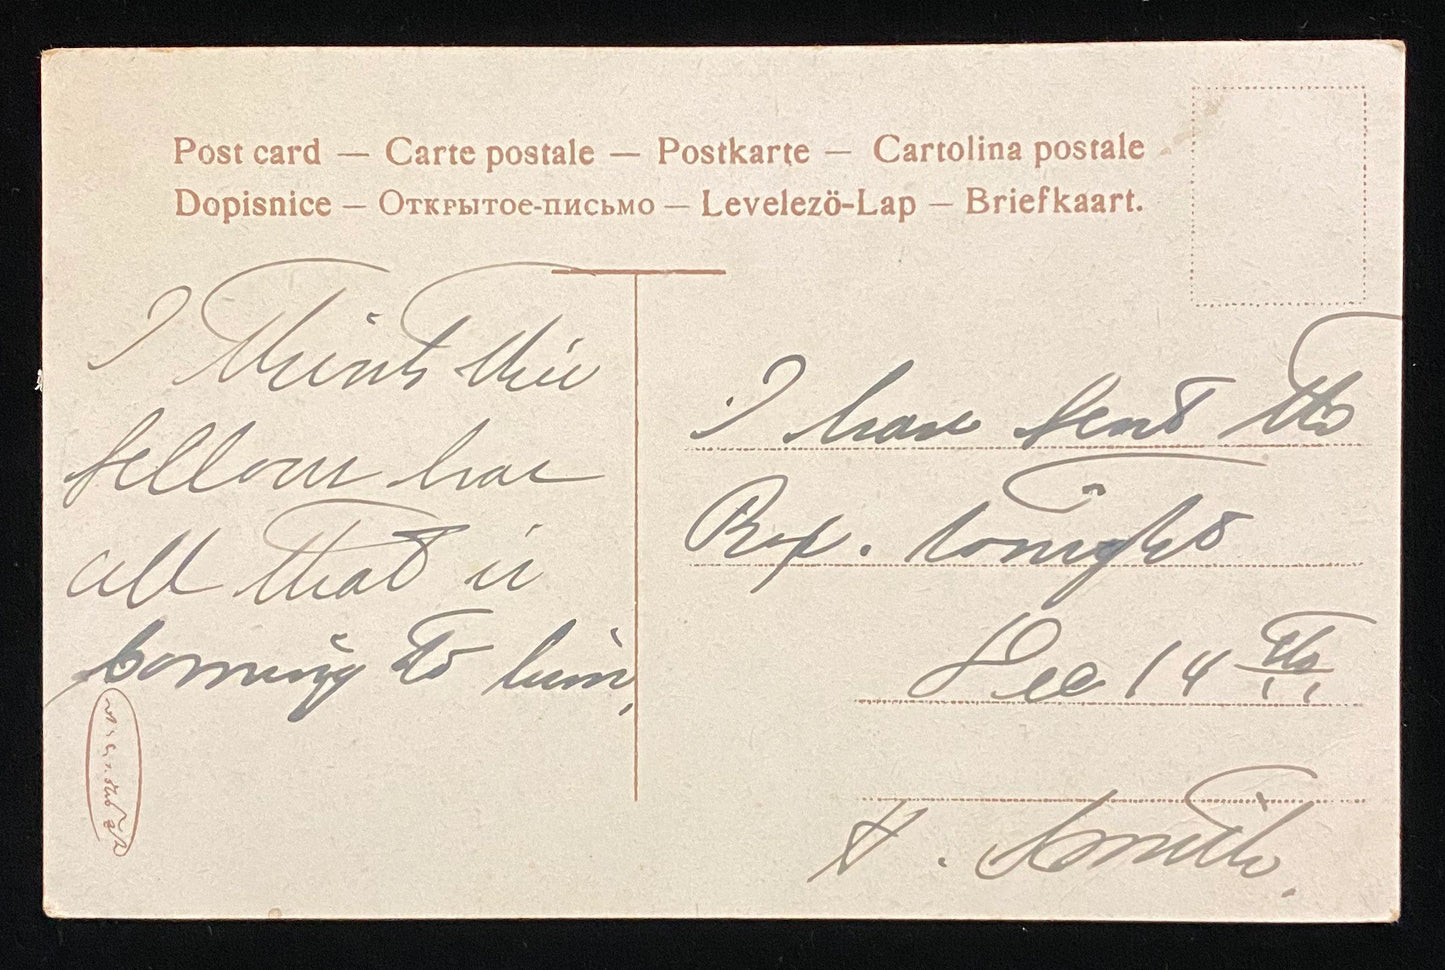 Post card — Carte postale — Postkarte — Cartolina postale
Dopisnice — Открытое-письмо — Levelező-Lap — Briefkaart.
I think this
fellow has
all that is
coming to him,
I have sent the
Box. tonight
Dec 14th
H. Smith.